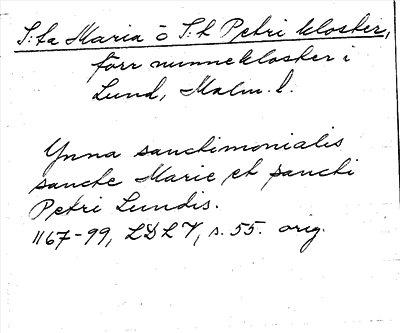 S:ta Maria o S:t Petri kloster,
förr nunnekloster i
Lund, Malm. l.
Ynna sanctimonialis
sancte Marie et sancti
Petri Lundis.
1167-99, LDLV, s. 55. orig.